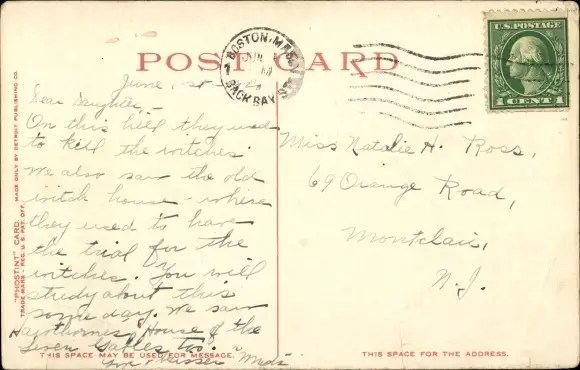 POST CARD
U.S. POSTAGE
1 CENT 1
BOSTON, MASS.
BACK BAY
June,
Dear Daughter,—
On this hill they used
to kill the witches
We also saw the old
witch house - where
they used to have
the trial for the
witches. You will
study about this
some day. We saw
Hawthorne's House of the
Seven Gables too.
kisses
Miss Natalie H. Ross,
69 Orange Road,
Montclair,
N.J.
"PHOSTINT" CARD. MADE ONLY BY DETROIT PUBLISHING CO.
TRADE MARK - REG. U.S. PAT. OFF.
THIS SPACE MAY BE USED FOR MESSAGE.
THIS SPACE FOR THE ADDRESS.